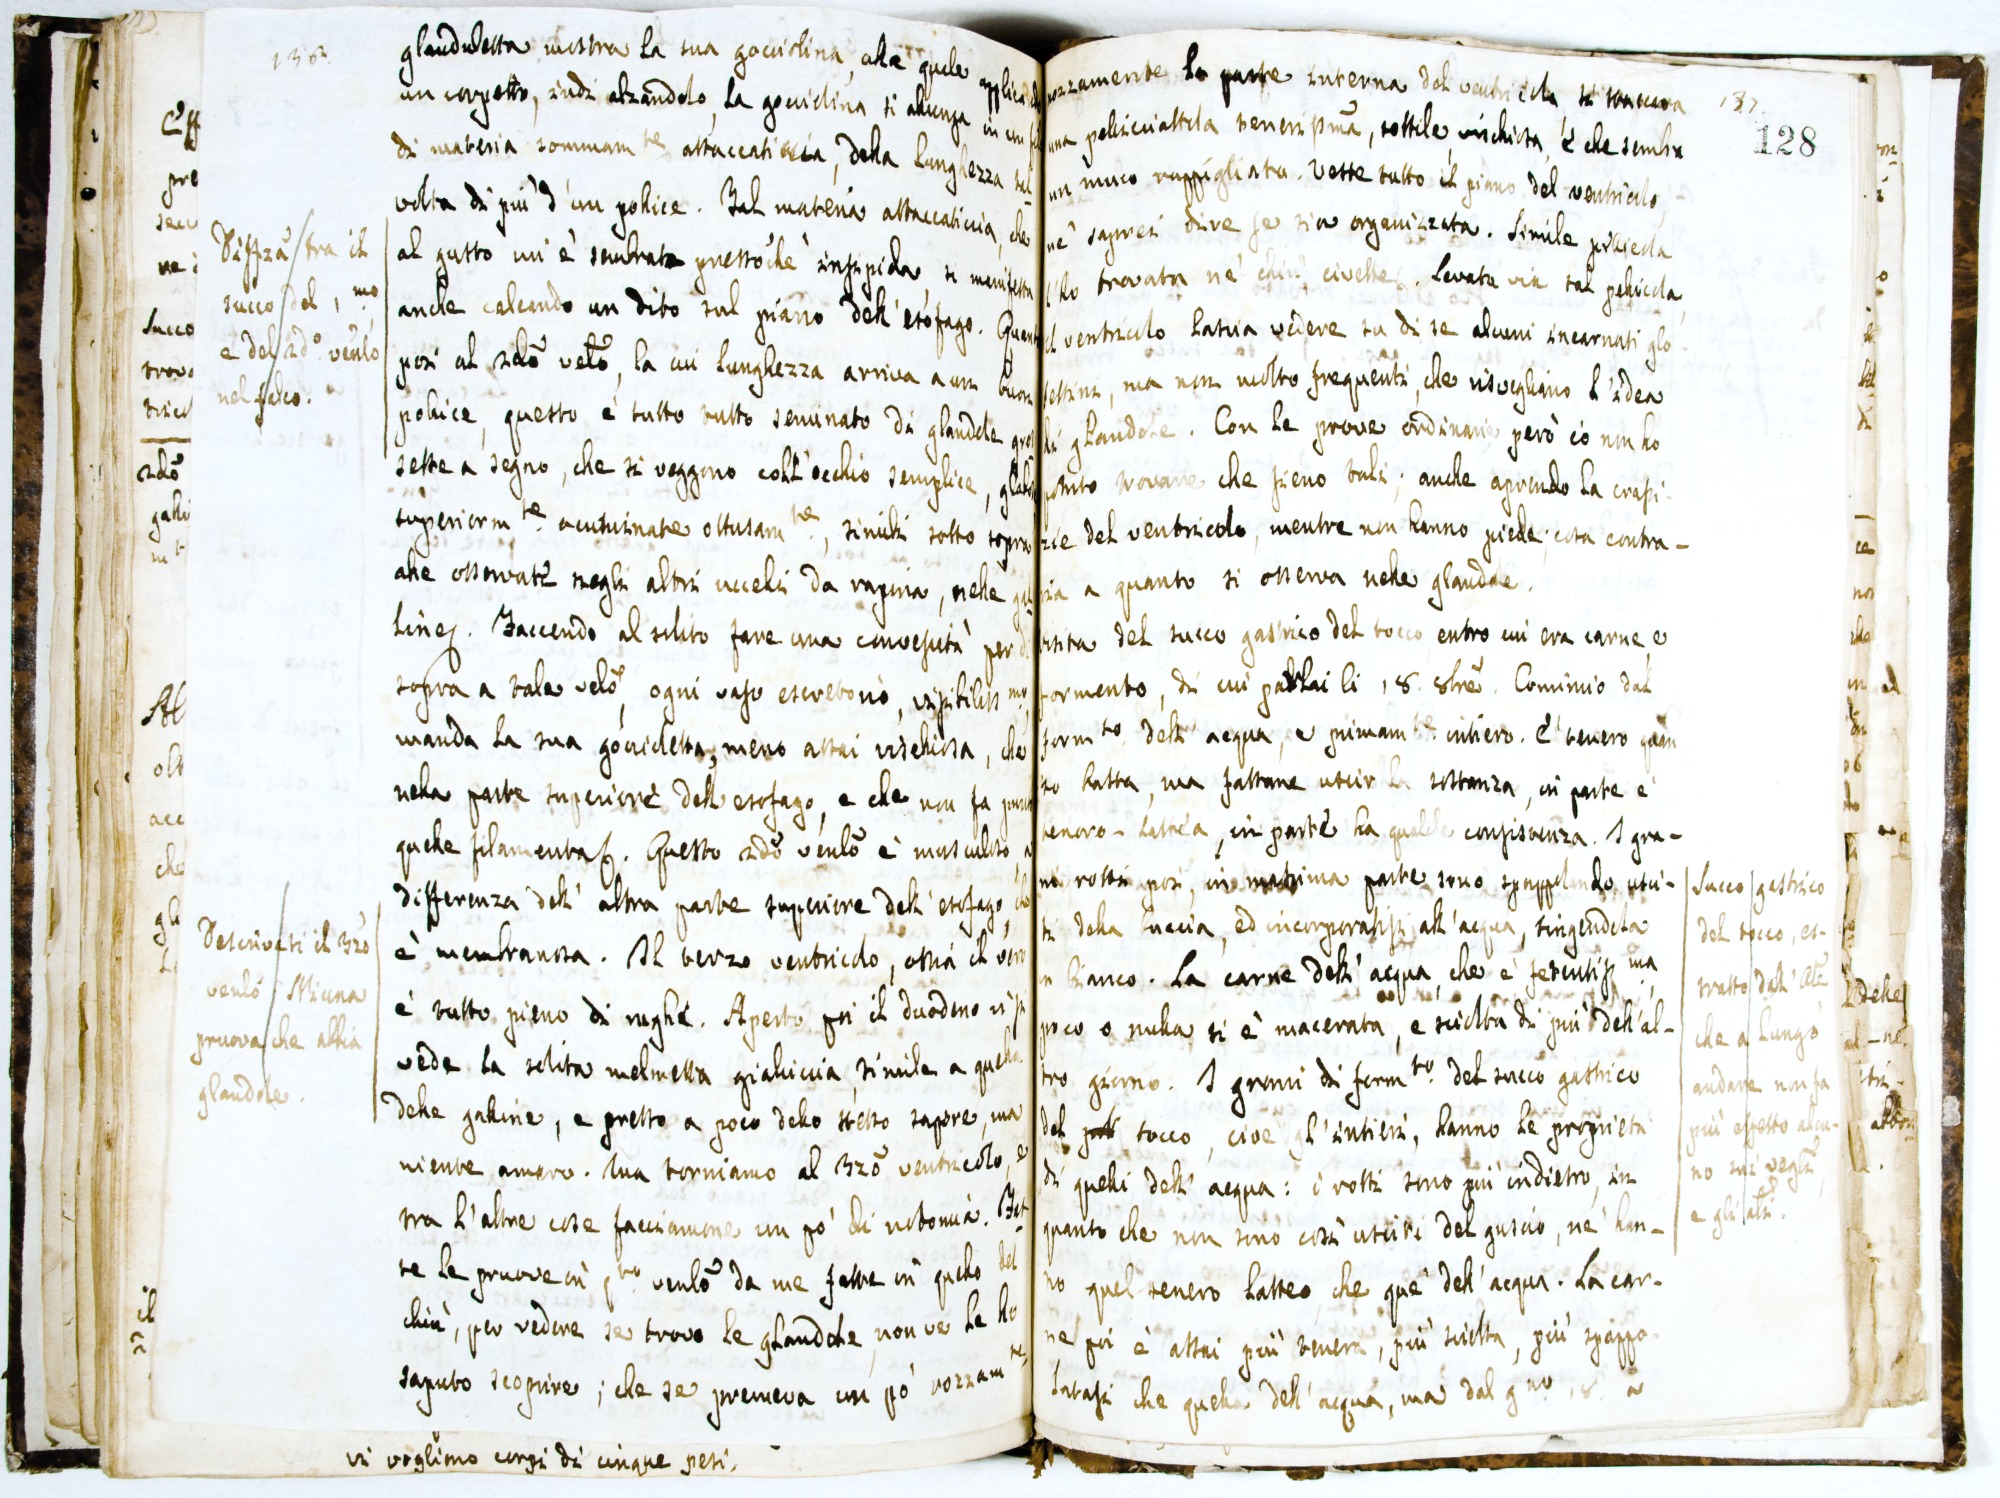 136.
glanduletta mostra la sua gocciolina, alla quale applicando
un corpetto, indi alzandolo, la gocciolina si allunga in un filo
di materia sommam.te attaccaticcia, della lunghezza tal-
volta di più d'un pollice. Tal materia attaccaticcia, che
al gusto mi è sembrata pressoché insipida, si manifesta
anche calcando un dito sul piano dell'esofago. Quanto
poi al 2do velo, la cui lunghezza arriva a un buon
pollice, questo è tutto tutto seminato di glandole gros
sette a segno, che si veggono coll'occhio semplice,
superiorm.te acuminate ottusam.te, simili sotto sopra
alle osservate negli altri uccelli da rapina, nelle gal
line. Facendo al solito fare una convessità per di
sopra a tale velo, ogni vaso escretorio, visibiliss.mo,
manda la sua goccioletta, meno assai vischiosa, che
nella parte superiore dell'esofago, e che non fa punto
quelle filamenta. Questo 2do venlo è musculoso, a
differenza dell'altra parte superiore dell'esofago, che
è membranosa. Il terzo ventricolo, ossia il vero
è tutto pieno di rughe. Aperto poi il duodeno vi si
vede la solita melmetta gialiccia, simile a quella
delle galline, e presso a poco dello stesso sapore, ma
niente amaro. Ma torniamo al 3zo ventricolo, e
tra l'altre cose facciamone un po' di notomia. Fat-
te le pruove in q.to venlo da me fatte in quello del
chiù, per vedere se trovo le glandole, non ve le ho
saputo scoprire; che se premeva un po' rozzam.te
vi vogliono corpi di cinque peri.
Diffza tra il
succo del 1.mo
e del 2do. venlo
nel falco.
Descrivesi il 3zo
venlo. Niuna
pruova che abbia
glandole.
137.
128
rozzamente la parte interna del ventricolo, si staccava
una pellicciattola tenerissma, sottile, vischiosa, e che sembra
un muco rappigliato. Veste tutto il piano del ventricolo,
né saprei dire se sia organizzata. Simile pellicola
l'ho trovata né chiù civette. Levata via tal pellicola,
il ventricolo lascia vedere su di se alcuni incarnati glo-
bettini, ma non molto frequenti, che risvegliano l'idea
di glandole. Con le prove ordinarie però io non ho
potuto trovare che sieno tali; anche aprendo la crassi-
zie del ventricolo, mentre non hanno piede, cosa contra-
ria a quanto si osserva nelle glandole.
Visita del succo gastrico del tocco, entro cui era carne, e
formento, di cui parlai li 18. 8bre. Comincio dal
form.to dell'acqua, e primam.te intiero. È tenero quan
to latta, ma fattane uscir la sostanza, in parte è
tenero-lattea, in parte ha qualche consistenza. I gra-
ni rotti poi, in massima parte sono spappolando, usci-
ti della buccia, ed incorporatisi all'acqua, tingendola
in bianco. La carne dell'acqua, che è fetentiss.ma,
poco o nulla si è macerata, e sciolta di più dell'al-
tro giorno. I grani di form.to del succo gastrico
del tocco, cioè gl'intieri, hanno le proprietà
di quelli dell'acqua: i rotti sono più indietro, in
quanto che non sono così usciti del guscio, né han-
no quel tenero latteo, che que' dell'acqua. La car-
ne poi è assai più tenera, più sciolta, più spappo-
latasi che quella dell'acqua, ma dal g.no 18. a
Succo gastrico
del tocco, es-
tratto dall'
che a lungo
andare non fa
più effetto alcu-
no sui vegli,
e gli ali.